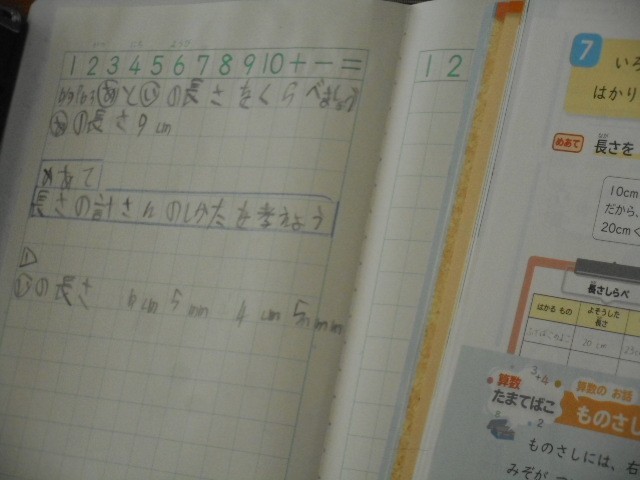 1 2 3 4 5 6 7 8 9 10 + − =
あといの長さをくらべましょう
あの長さ 9 cm
めあて
長さの計さんのしかたを考えよう
①
いの長さ 4 cm 5 mm 4 cm 5 mm
1 2
7
いろ
はかり
めあて
長さを
10cm
だから、
20cmく
長さしらべ
はかる もの
よそうした長さ
20 cm
算数
たまてばこ
算数の お話
ものさし
ものさしには、右
みぞが